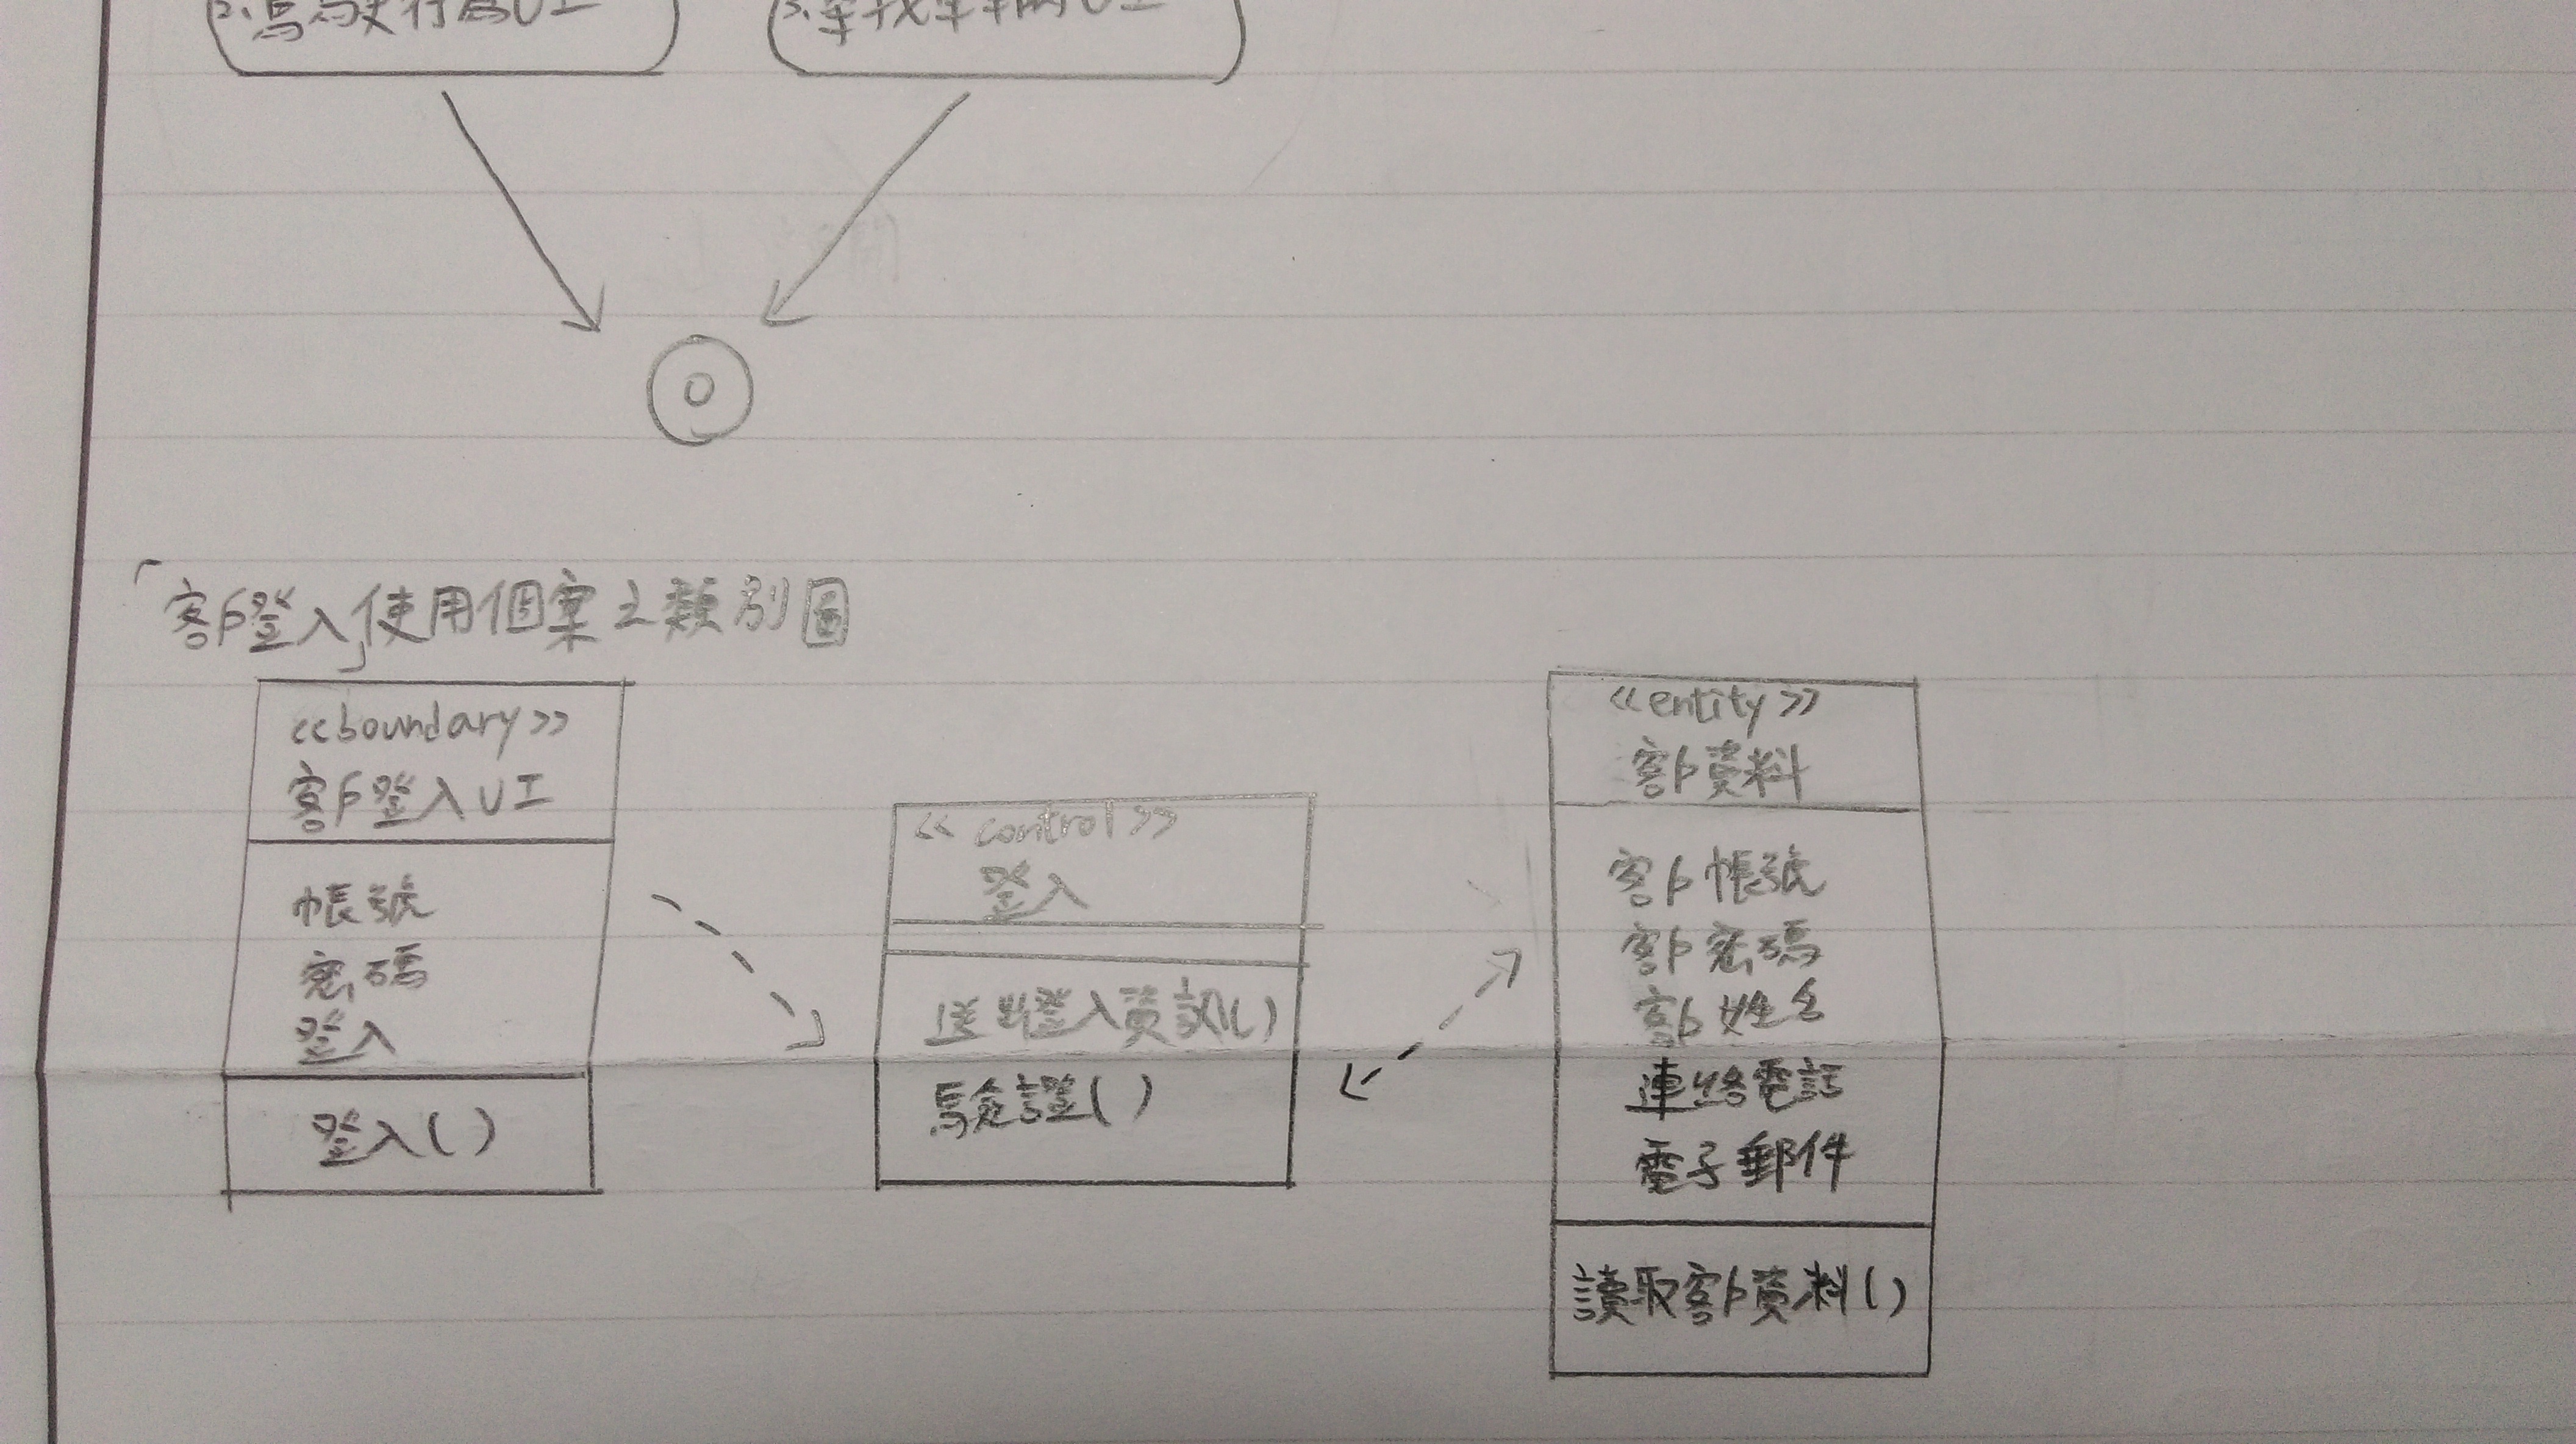 2.駕駛行為UI
3.尋找車輛UI
「客戶登入」使用個案之類別圖
<<boundary>>
客戶登入UI
帳號
密碼
登入
登入()
<<control>>
登入
送出登入資訊()
驗證()
<<entity>>
客戶資料
客戶帳號
客戶密碼
客戶姓名
連絡電話
電子郵件
讀取客戶資料()